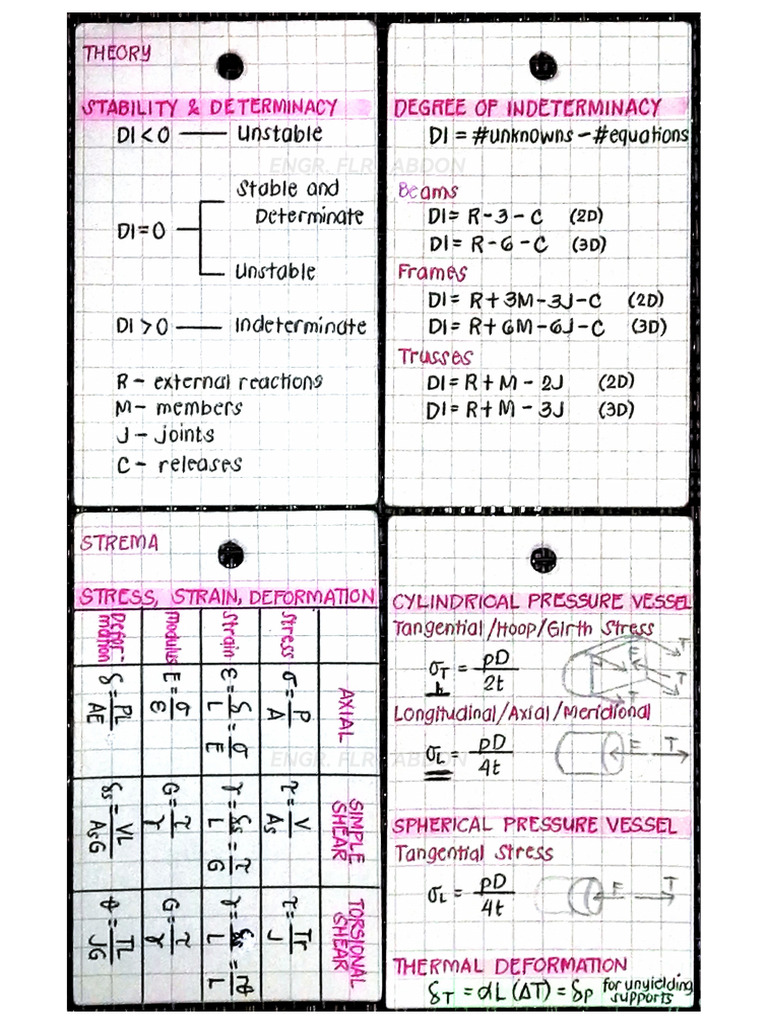 THEORY
STABILITY & DETERMINACY
DI < 0 — Unstable
ENGR. FLR ABDON
DI = 0
Stable and
Determinate
Unstable
DI > 0 — Indeterminate
R – external reactions
M – members
J – joints
C – releases
DEGREE OF INDETERMINACY
DI = #unknowns – #equations
Beams
DI = R – 3 – C (2D)
DI = R – 6 – C (3D)
Frames
DI = R + 3M – 3J – C (2D)
DI = R + 6M – 6J – C (3D)
Trusses
DI = R + M – 2J (2D)
DI = R + M – 3J (3D)
STREMA
STRESS, STRAIN, DEFORMATION
AXIAL
SIMPLE
SHEAR
TORSIONAL
SHEAR
Stress
σ = P/A
τ = V/As
τ = Tr/J
Strain
ε = δ/L = σ/E
γ = δs/L = τ/G
γ = δs/L =
Modulus
E = σ/ε
G = τ/γ
G = τ/γ
Defor-
mation
δ = PL/AE
δs = VL/AsG
φ = TL/JG
ENGR. FLR ABDON
CYLINDRICAL PRESSURE VESSEL
Tangential/Hoop/Girth Stress
σT = pD/2t
F T
T
T
Longitudinal/Axial/Meridional
σL = pD/4t
F T
SPHERICAL PRESSURE VESSEL
Tangential Stress
σL = pD/4t
F T
THERMAL DEFORMATION
δT = αL(ΔT) = δP for unyielding
supports